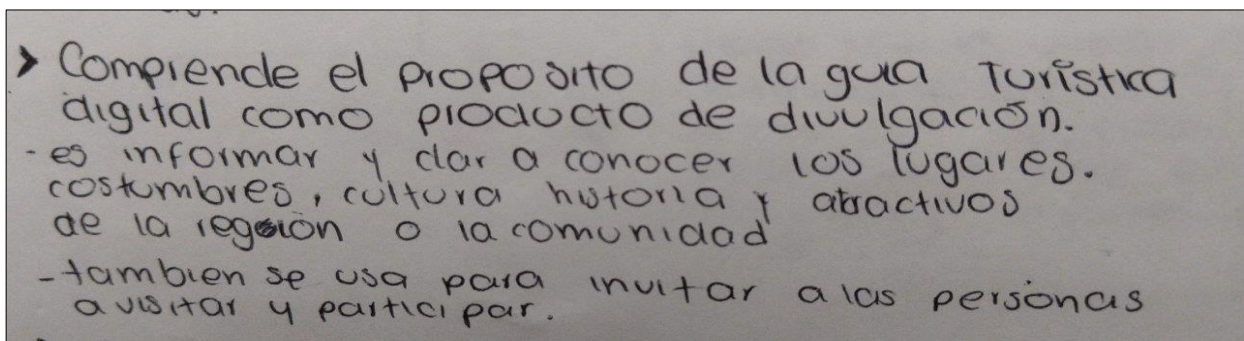 > Comprende el proposito de la guia Turística
digital como producto de divulgación.
- es informar y dar a conocer los lugares.
costumbres, cultura historia y atractivos
de la región o la comunidad
- tambien se usa para invitar a las personas
a visitar y participar.